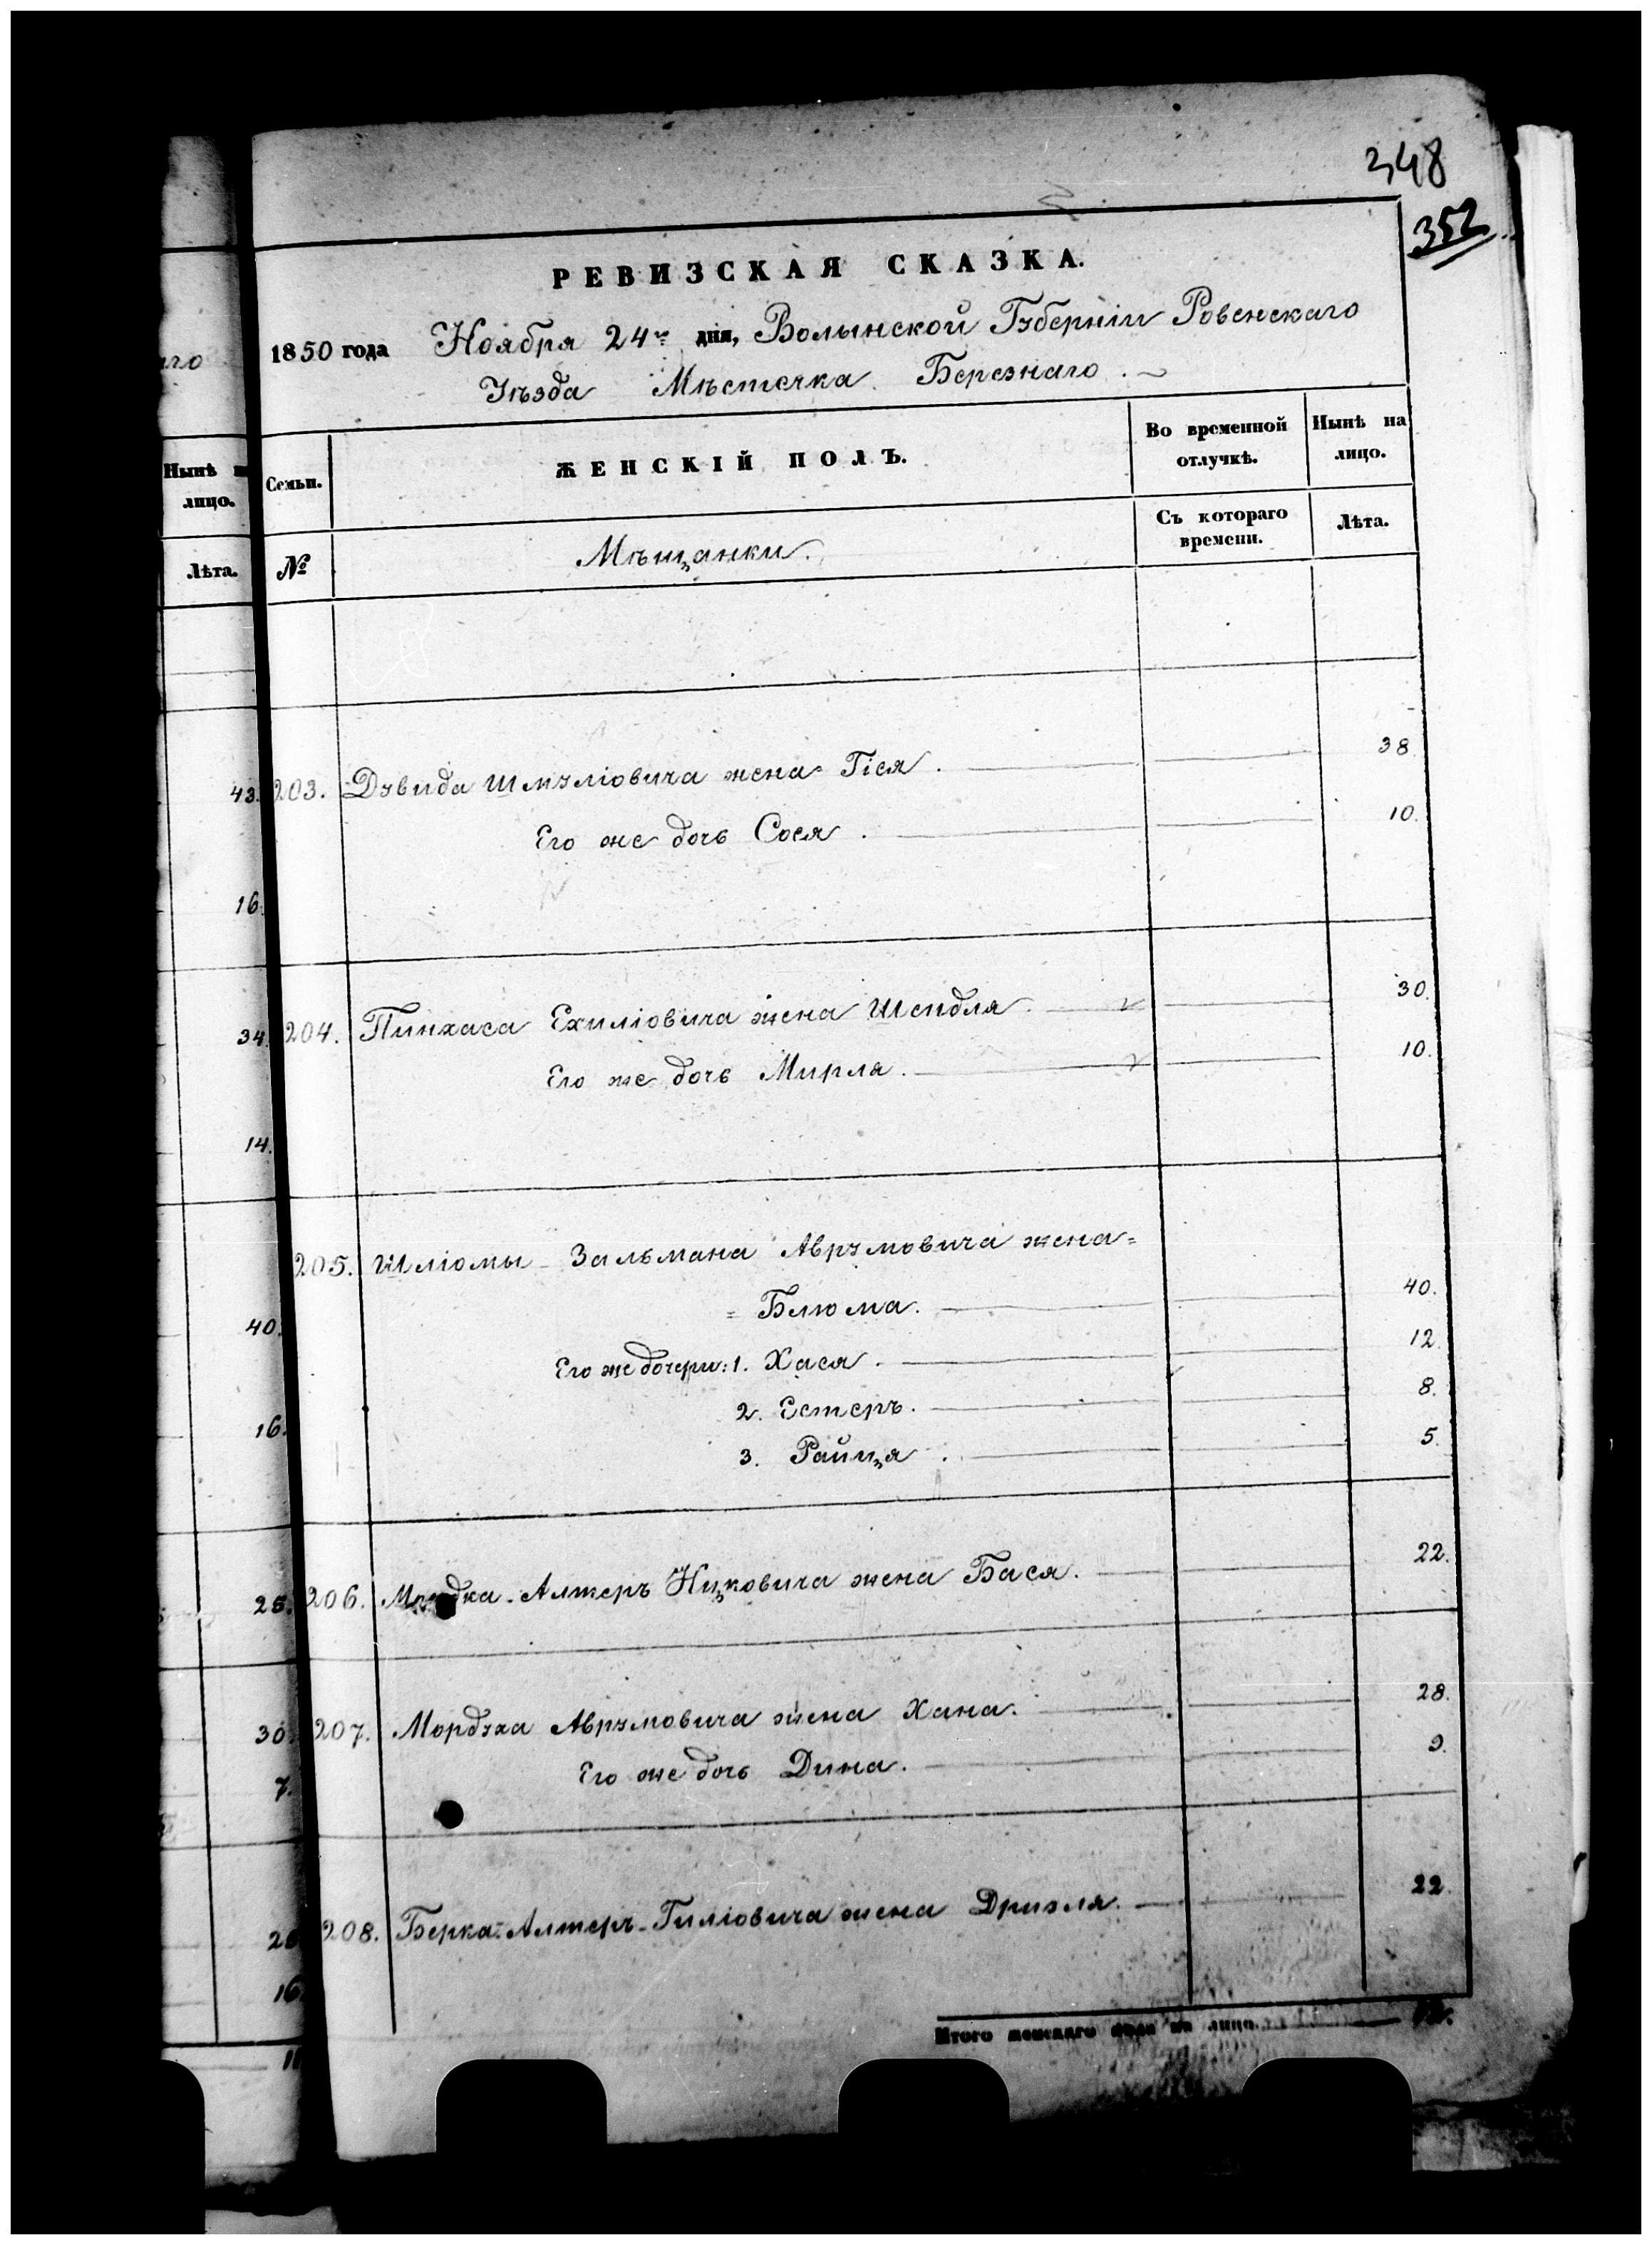 348
352
РЕВИЗСКАЯ СКАЗКА.
1850 года Ноября 24го дня, Волынской Губерніи Ровенскаго
Уѣзда Мѣстечка Березнаго.
аго
Нынѣ на
лицо.
Лѣта.
Семьи.
ЖЕНСКІЙ ПОЛЪ.
Во временной
отлучкѣ.
Нынѣ на
лицо.
№
Мѣщанки.
Съ котораго
времени.
Лѣта.
43. 203. Дувида Шмуліовича жена Гіся. 38
Его же дочь Сося. 10.
16.
34. 204. Пинхаса Ехиліовича жена Шейдля. 30.
Его же дочь Мирля. 10.
14.
205. Шліомы-Зальмана Аврумовича жена=
=Блюма. 40.
40.
Его же дочери: 1. Хася. 12
2. Естеръ. 8.
16.
3. Райця. 5.
25. 206. Алтеръ Ицковича жена Бася. 22.
30. 207. Мордуха Аврумовича жена Хана. 28.
7. Его же дочь Дина. 9.
208. Берка-Алтеръ-Гиліовича жена Дризля. 22.
16.
Итого женскаго пола на лицо.